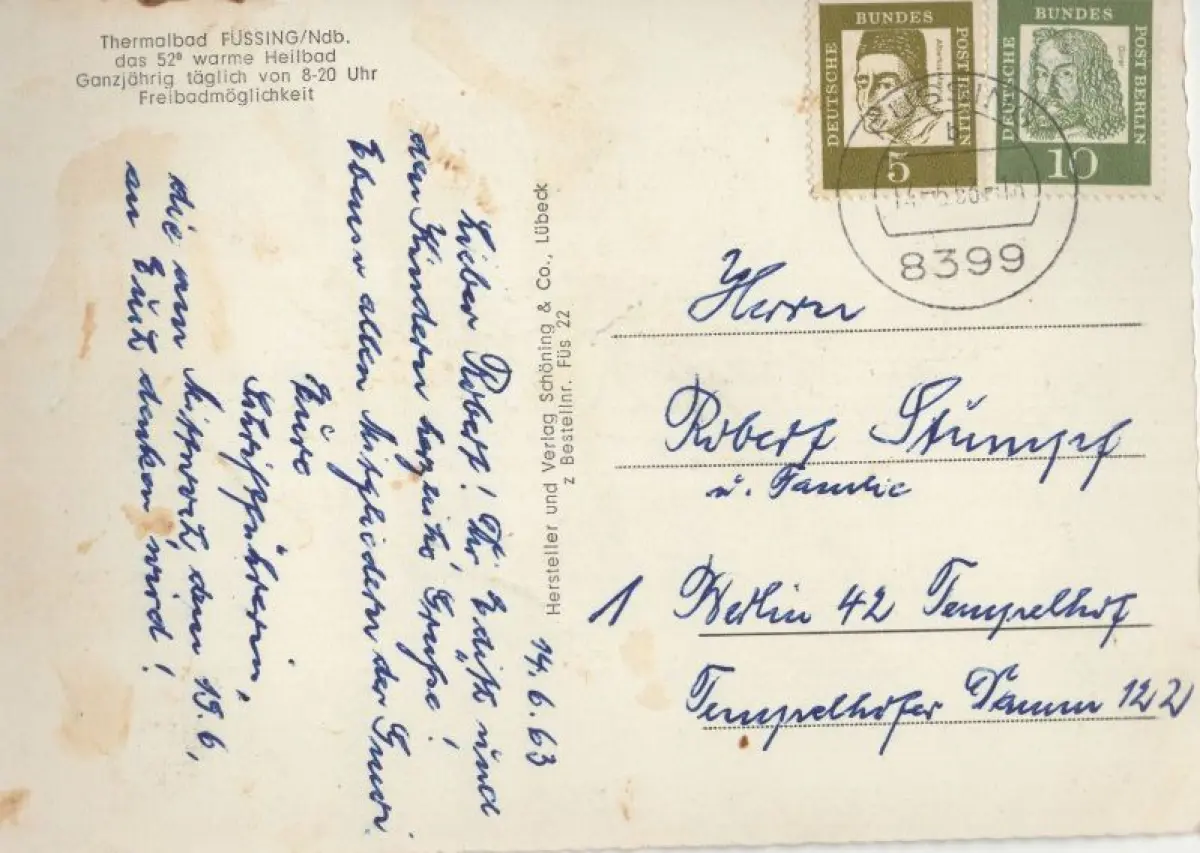 Thermalbad FÜSSING/Ndb.
das 52° warme Heilbad
Ganzjährig täglich von 8-20 Uhr
Freibadmöglichkeit
14.6.63
Lieber Robert! Dir, Edith und
den Kindern herzliche Grüße!
Ebenso allen Mitgliedern der
Eure
Schriftführerin,
die am Mittwoch, dem 19.6,
an Euch denken wird!
Hersteller und Verlag Schöning & Co., Lübeck
z Bestellnr. Füs 22
DEUTSCHE BUNDES POST BERLIN
5
DEUTSCHE BUNDES POST BERLIN
Dürer
10
FÜSSING
b
8399
Herrn
Robert Stumpf
u. Familie
1 Berlin 42 Tempelhof
Tempelhofer Damm 122